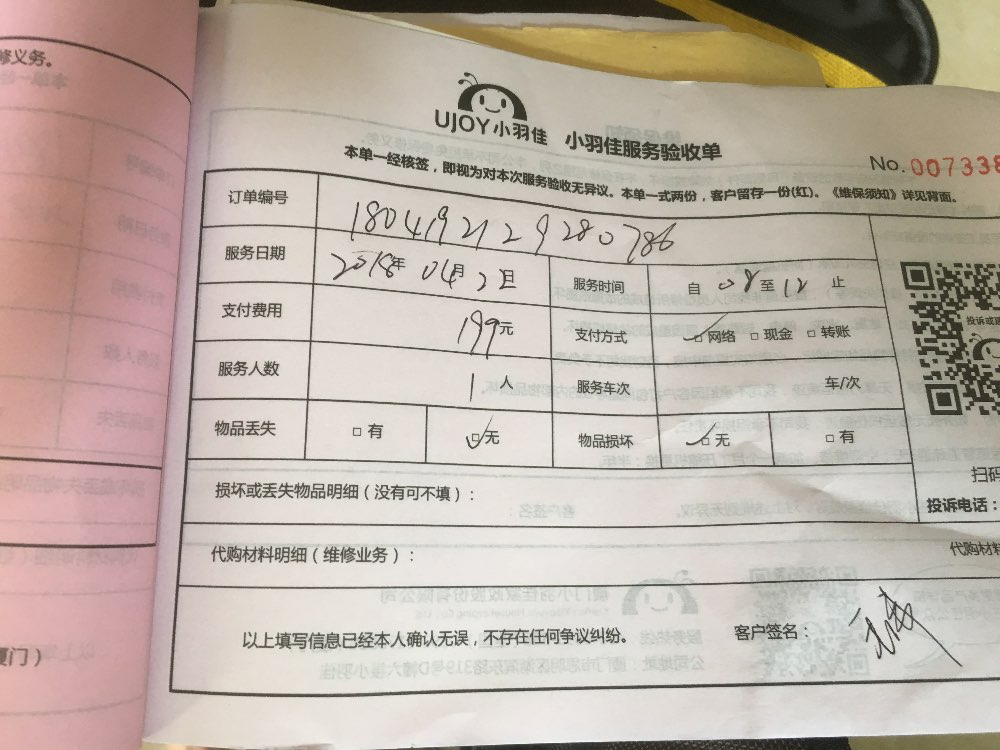 修义务。
UJOY小羽佳 小羽佳服务验收单
No. 007338
本单一经核签，即视为对本次服务验收无异议。本单一式两份，客户留存一份(红)。《维保须知》详见背面。
订单编号 1804192129280786
服务日期 2018年 04月 2日 服务时间 自 08 至 12 止
投诉或
支付费用 199元 支付方式 □网络 □现金 □转账
服务人数 1人 服务车次 车/次
物品丢失 □有 □无 物品损坏 □无 □有
扫码
损坏或丢失物品明细（没有可不填）：
投诉电话：
代购材料明细（维修业务）：
代购材料
以上填写信息已经本人确认无误，不存在任何争议纠纷。 客户签名：
厦门）